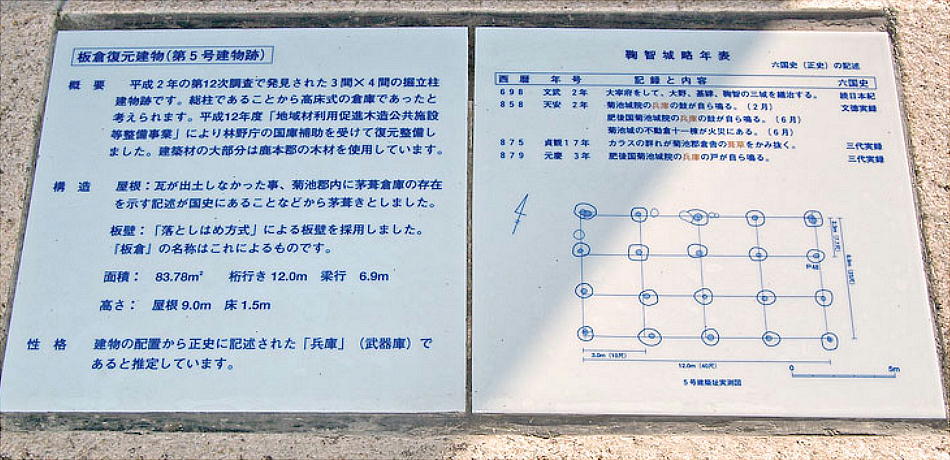 板倉復元建物(第5号建物跡)
概要 平成2年の第12次調査で発見された3間×4間の掘立柱
建物跡です。総柱であることから高床式の倉庫であったと
考えられます。平成12年度「地域材利用促進木造公共施設
等整備事業」により林野庁の国庫補助を受けて復元整備し
ました。建築材の大部分は鹿本郡の木材を使用しています。
構造 屋根:瓦が出土しなかった事、菊池郡内に茅葺倉庫の存在
を示す記述が国史にあることなどから茅葺きとしました。
板壁:「落としはめ方式」による板壁を採用しました。
『板倉』の名称はこれによるものです。
面積: 83.78m² 桁行き12.0m 梁行 6.9m
高さ: 屋根9.0m 床1.5m
性格 建物の配置から正史に記述された「兵庫」(武器庫)で
あると推定しています。
鞠智城略年表
六国史(正史)の記述
西暦 年号 記録と内容 六国史
698 文武 2年 大宰府をして、大野、基肄、鞠智の三城を繕治する。 続日本紀
858 天安 2年 菊池城院の兵庫の鼓が自ら鳴る。(2月) 文徳実録
肥後国菊池城院の兵庫の鼓が自ら鳴る。(6月)
菊池城の不動倉十一棟が火災にある。(6月)
875 貞観17年 カラスの群れが菊池郡倉舎の葺草をかみ抜く。 三代実録
879 元慶 3年 肥後国菊池城院の兵庫の戸が自ら鳴る。 三代実録
3.0m(10尺)
12.0m(40尺)
0 5m
5号建築址実測図